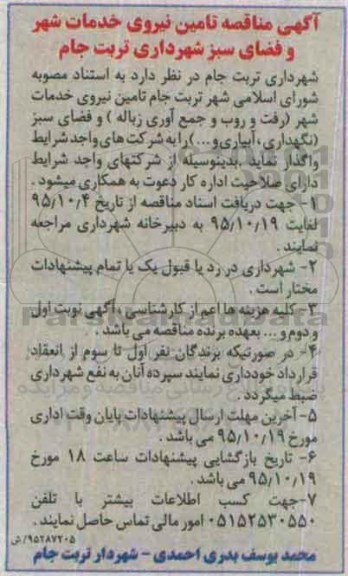 آگهی مناقصه تامین نیروی خدمات شهر
و فضای سبز شهرداری تربت جام
شهرداری تربت جام در نظر دارد به استناد مصوبه
شورای اسلامی شهر تربت جام تامین نیروی خدمات
شهر (رفت و روب و جمع آوری زباله ) و فضای سبز
(نگهداری ، آبیاری و ... ) را به شرکت های واجد شرایط
واگذار نماید .بدینوسیله از شرکتهای واجد شرایط
دارای صلاحیت اداره کار دعوت به همکاری میشود .
۱- جهت دریافت اسناد مناقصه از تاریخ ۹۵/۱۰/۴
لغایت ۹۵/۱۰/۱۹ به دبیرخانه شهرداری مراجعه
نمایند .
۲- شهرداری در رد یا قبول یک یا تمام پیشنهادات
مختار است .
۳- کلیه هزینه ها اعم از کارشناسی ، آگهی نوبت اول
و دوم و ... بعهده برنده مناقصه می باشد .
۴- در صورتیکه برندگان نفر اول تا سوم از انعقاد
قرارداد خودداری نمایند سپرده آنان به نفع شهرداری
ضبط میگردد .
۵- آخرین مهلت ارسال پیشنهادات پایان وقت اداری
مورخ ۹۵/۱۰/۱۹ می باشد .
۶- تاریخ بازگشایی پیشنهادات ساعت ۱۸ مورخ
۹۵/۱۰/۱۹ می باشد .
۷-جهت کسب اطلاعات بیشتر با تلفن
۰۵۱۵۲۵۳۰۵۵۰ امور مالی تماس حاصل نمایند .
۹۵۲۸۷۲۰۵/ش
محمد یوسف بدری احمدی - شهردار تربت جام